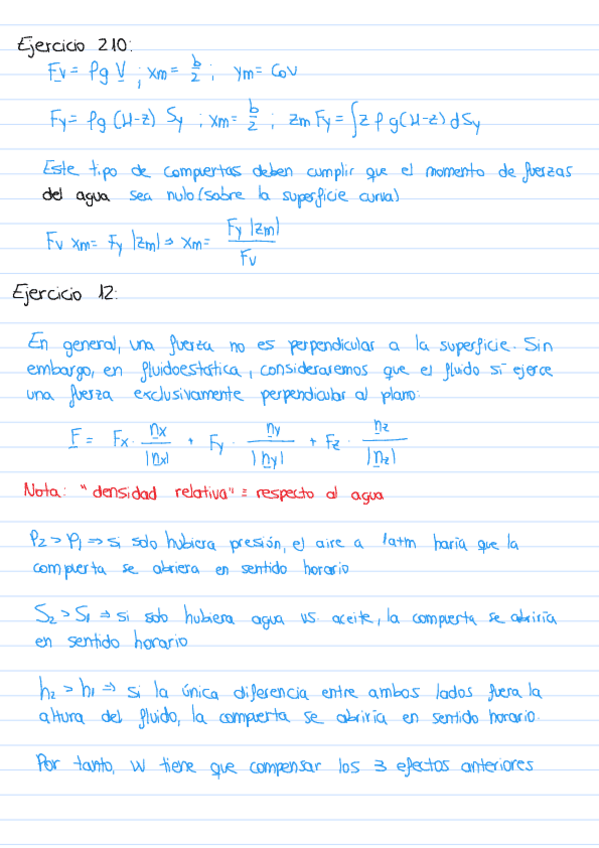 Ejercicio 2.10:
Fv = ρg V ; xm = b/2 ; ym = CoV
Fy = ρg (H-z) Sy ; xm = b/2 ; zm Fy = ∫z ρ g(H-z) dSy
Este tipo de compuertas deben cumplir que el momento de fuerzas
del agua sea nulo (sobre la superficie curva)
Fv xm = Fy |zm| ⇒ xm = Fy |zm| / Fv
Ejercicio 12:
En general, una fuerza no es perpendicular a la superficie. Sin
embargo, en fluidoestática, consideraremos que el fluido sí ejerce
una fuerza exclusivamente perpendicular al plano:
F = Fx · nx/|nx| + Fy · ny/|ny| + Fz · nz/|nz|
Nota: "densidad relativa" ≡ respecto al agua
P2 > P1 ⇒ si solo hubiera presión, el aire a 1atm haría que la
compuerta se abriera en sentido horario
S2 > S1 ⇒ si solo hubiera agua vs. aceite, la compuerta se abriría
en sentido horario
h2 > h1 ⇒ si la única diferencia entre ambos lados fuera la
altura del fluido, la compuerta se abriría en sentido horario.
Por tanto, W tiene que compensar los 3 efectos anteriores